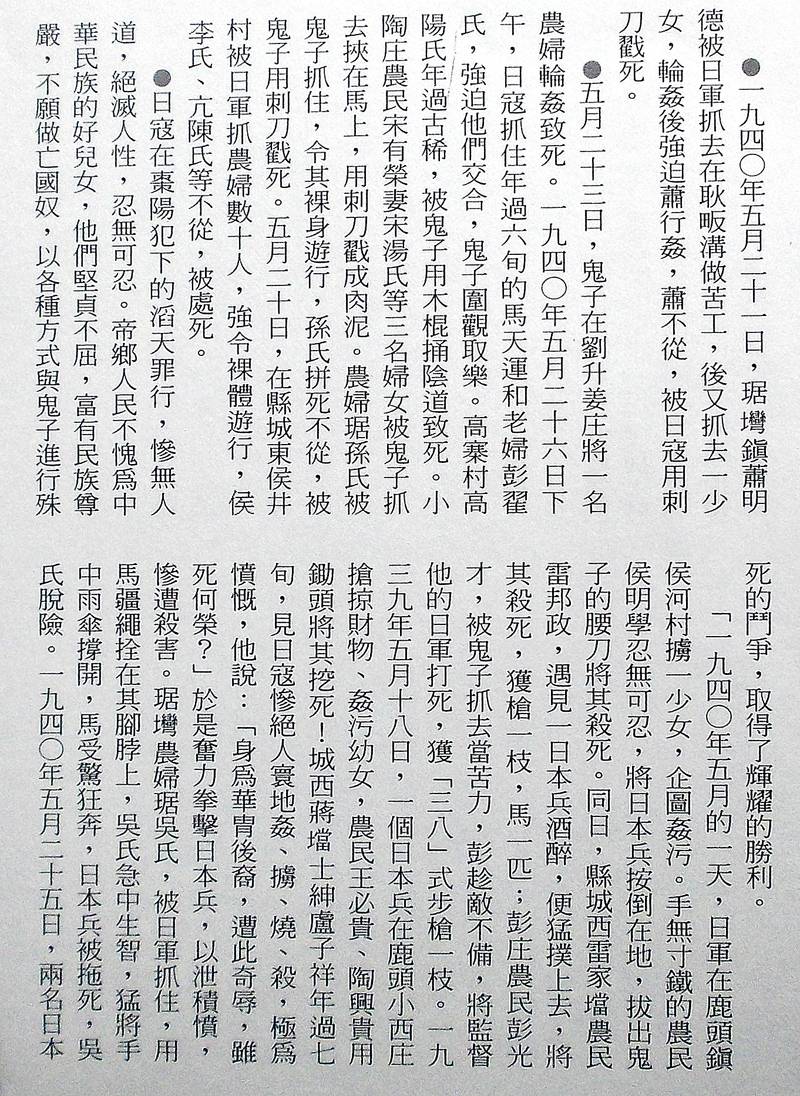 ●一九四〇年五月二十一日，琚壪鎮蕭明
德被日軍抓去在耿畈溝做苦工，後又抓去一少
女，輪姦後強迫蕭行姦，蕭不從，被日寇用刺
刀戳死。
●五月二十三日，鬼子在劉升姜庄將一名
農婦輪姦致死。一九四〇年五月二十六日下
午，日寇抓住年過六旬的馬天運和老婦彭翟
氏，強迫他們交合，鬼子圍觀取樂。高寨村高
陽氏年過古稀，被鬼子用木棍捅陰道致死。小
陶庄農民宋有榮妻宋湯氏等三名婦女被鬼子抓
去挾在馬上，用刺刀戳成肉泥。農婦琚孫氏被
鬼子抓住，令其裸身遊行，孫氏拼死不從，被
鬼子用刺刀戳死。五月二十日，在縣城東侯井
村被日軍抓農婦數十人，強令裸體遊行，侯
李氏、亢陳氏等不從，被處死。
●日寇在棗陽犯下的滔天罪行，慘無人
道，絕滅人性，忍無可忍。帝鄉人民不愧爲中
華民族的好兒女，他們堅貞不屈，富有民族尊
嚴，不願做亡國奴，以各種方式與鬼子進行殊
死的鬥爭，取得了輝耀的勝利。
「一九四〇年五月的一天，日軍在鹿頭鎮
侯河村擄一少女，企圖姦污。手無寸鐵的農民
侯明學忍無可忍，將日本兵按倒在地，拔出鬼
子的腰刀將其殺死。同日，縣城西雷家壋農民
雷邦政，遇見一日本兵酒醉，便猛撲上去，將
其殺死，獲槍一枝，馬一匹；彭庄農民彭光
才，被鬼子抓去當苦力，彭趁敵不備，將監督
他的日軍打死，獲「三八」式步槍一枝。一九
三九年五月十八日，一個日本兵在鹿頭小西庄
搶掠財物、姦污幼女，農民王必貴、陶興貴用
鋤頭將其挖死！城西蔣壋士紳盧子祥年過七
旬，見日寇慘絕人寰地姦、擄、燒、殺，極爲
憤慨，他說：「身爲華冑後裔，遭此奇辱，雖
死何榮？」於是奮力拳擊日本兵，以泄積憤，
慘遭殺害。琚壪農婦琚吳氏，被日軍抓住，用
馬疆繩拴在其腳脖上，吳氏急中生智，猛將手
中雨傘撐開，馬受驚狂奔，日本兵被拖死，吳
氏脫險。一九四〇年五月二十五日，兩名日本